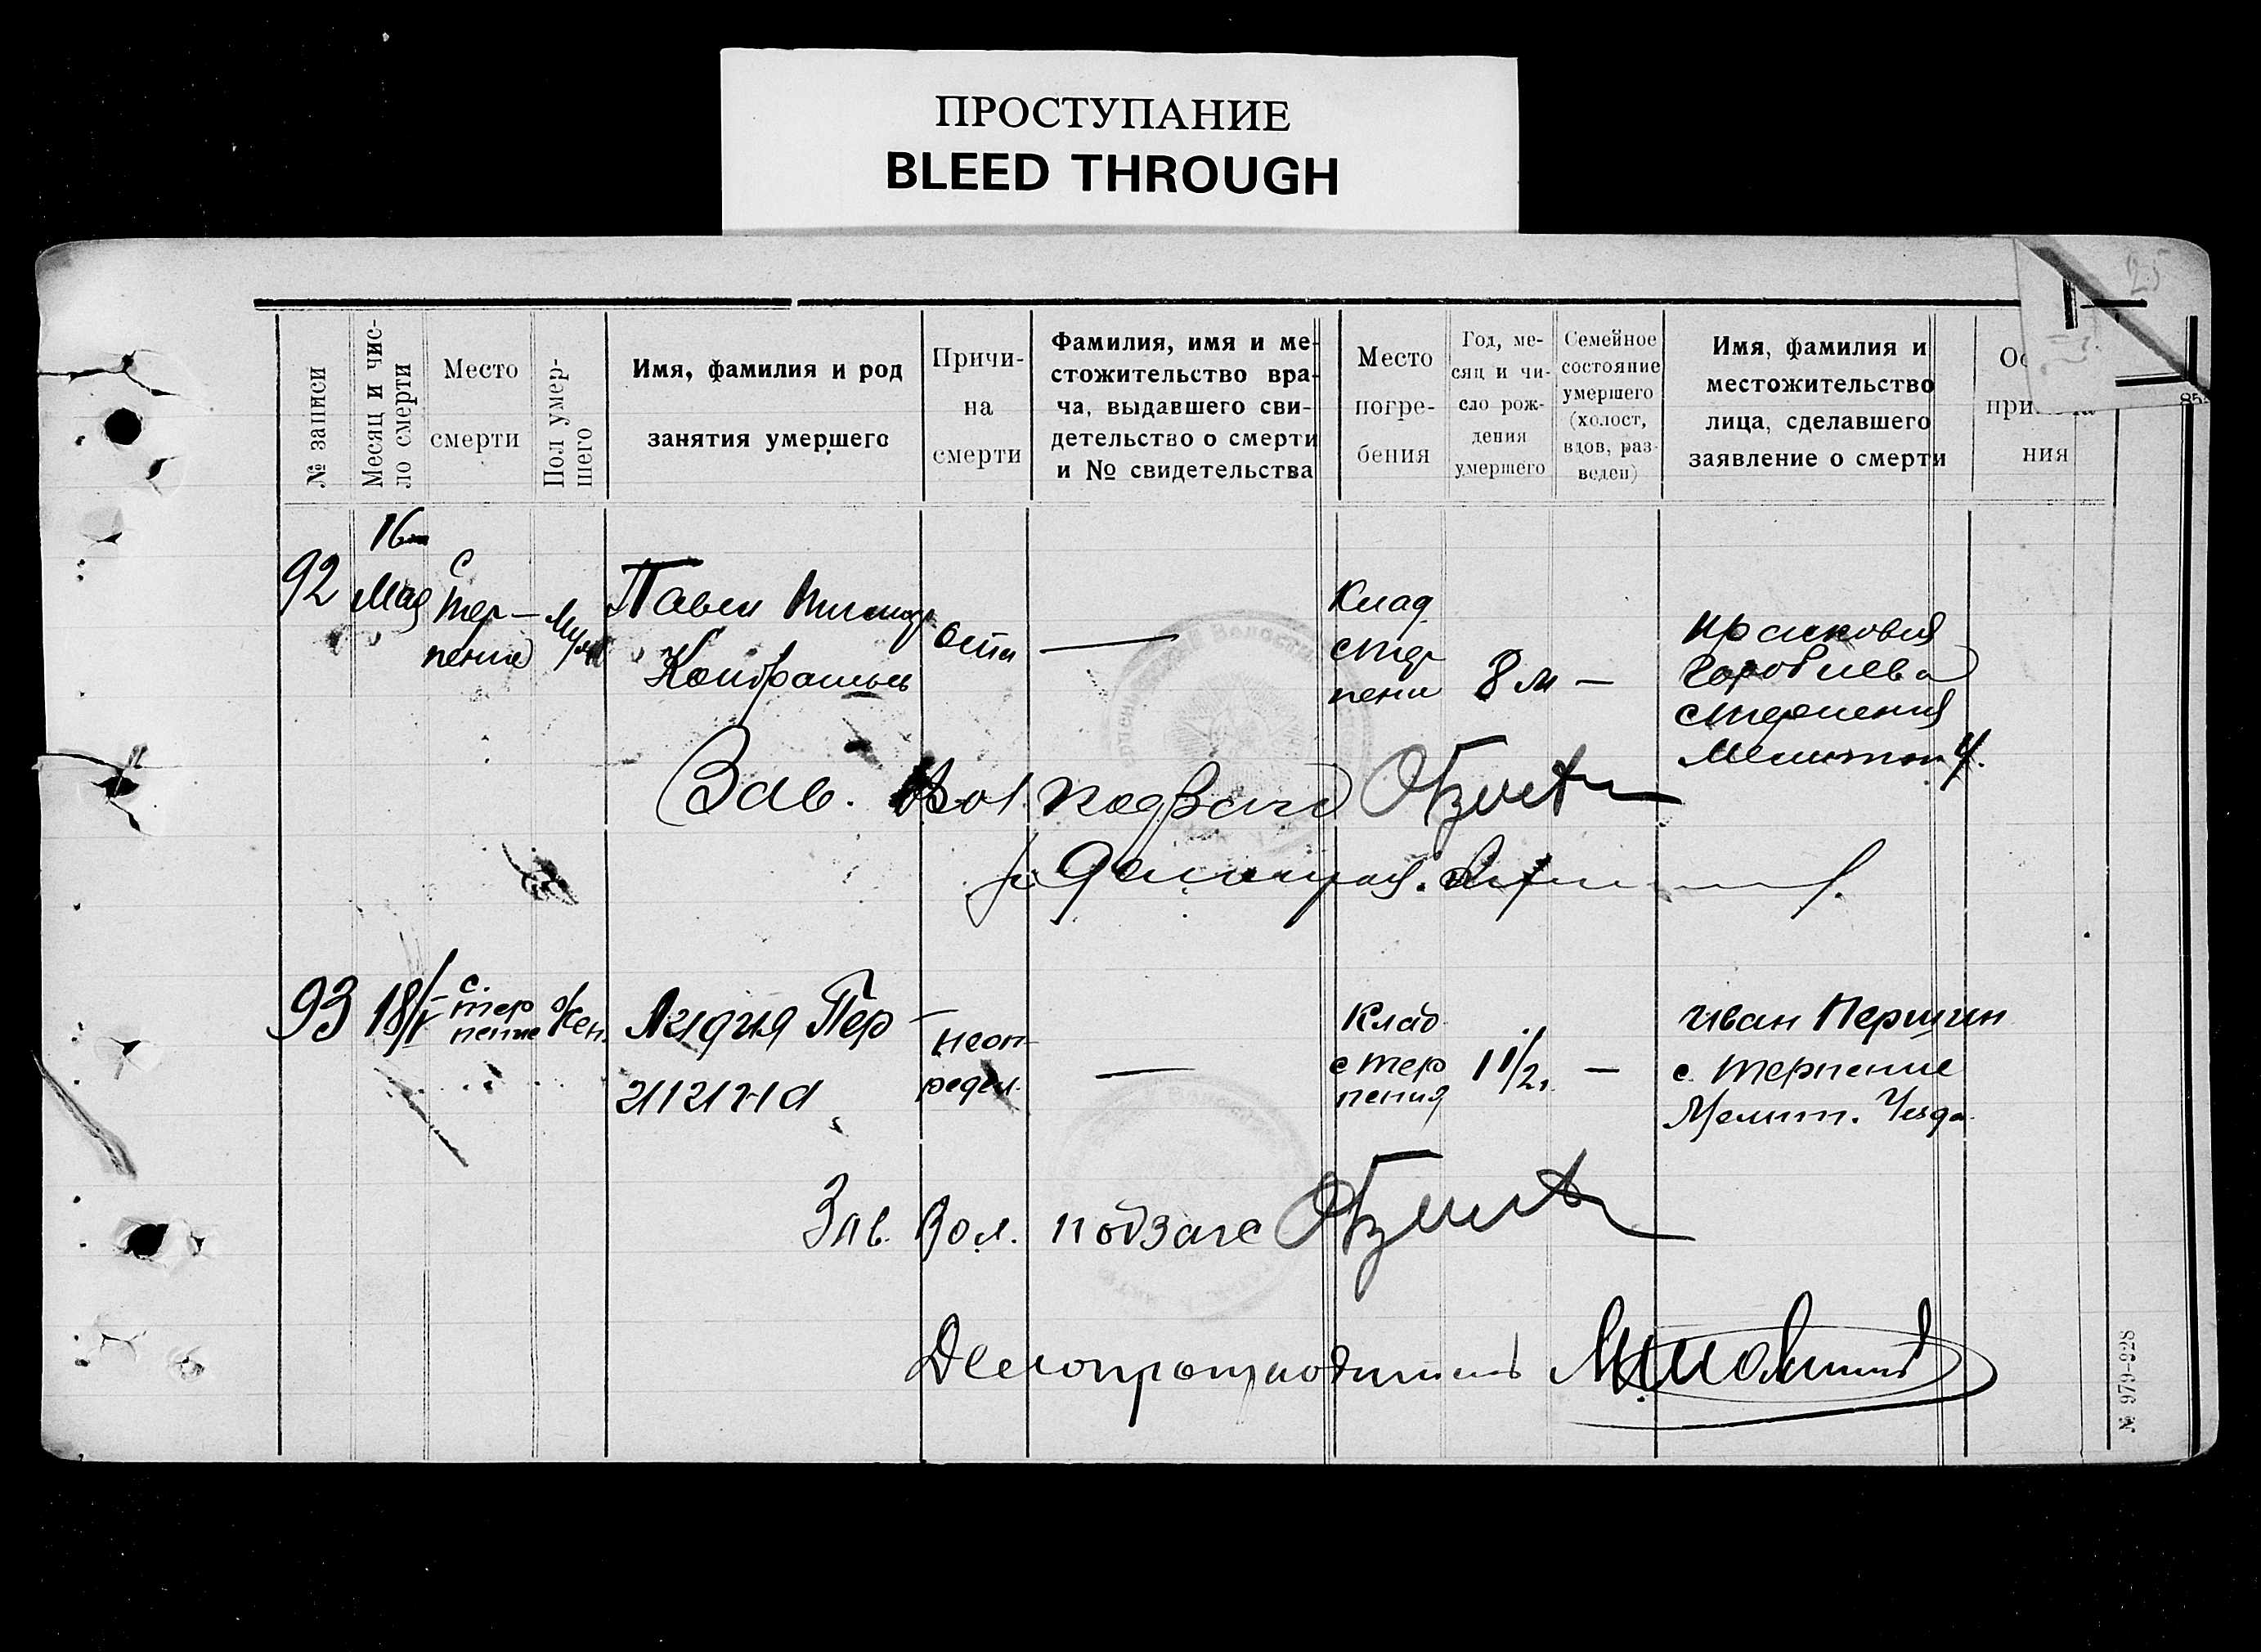 ПРОСТУПАНИЕ
BLEED THROUGH
25
№ записи
Месяц и чис-
ло смерти
Место
смерти
Пол умер-
шего
Имя, фамилия и род
занятия умершего
Причи-
на
смерти
Фамилия, имя и ме-
стожительство вра-
ча, выдавшего сви-
детельство о смерти
и № свидетельства
Место
погре-
бения
Год, ме-
сяц и чи-
сло рож-
дения
умершего
Семейное
состояние
умершего
(холост,
вдов, раз-
веден)
Имя, фамилия и
местожительство
лица, сделавшего
заявление о смерти
ния
92
16
Мая
с
Тер-
пение
Муж
Павел
Кондратьев
оспа
—
Клад
с Тер
пени
8 м —
Прасковия
с Терпения
Мелитоп У.
Зав. Вол подзагс
93
18/V
с.
Тер
пение
жен.
Лидия Пер-
шина
неоп-
редел.
—
Клад
с Тер
пения
1 1/2 —
Иван Першин
с. Терпение
Мелит. Уезда
Зав. Вол. подзагс
Делопроизводитель
№ 979-928